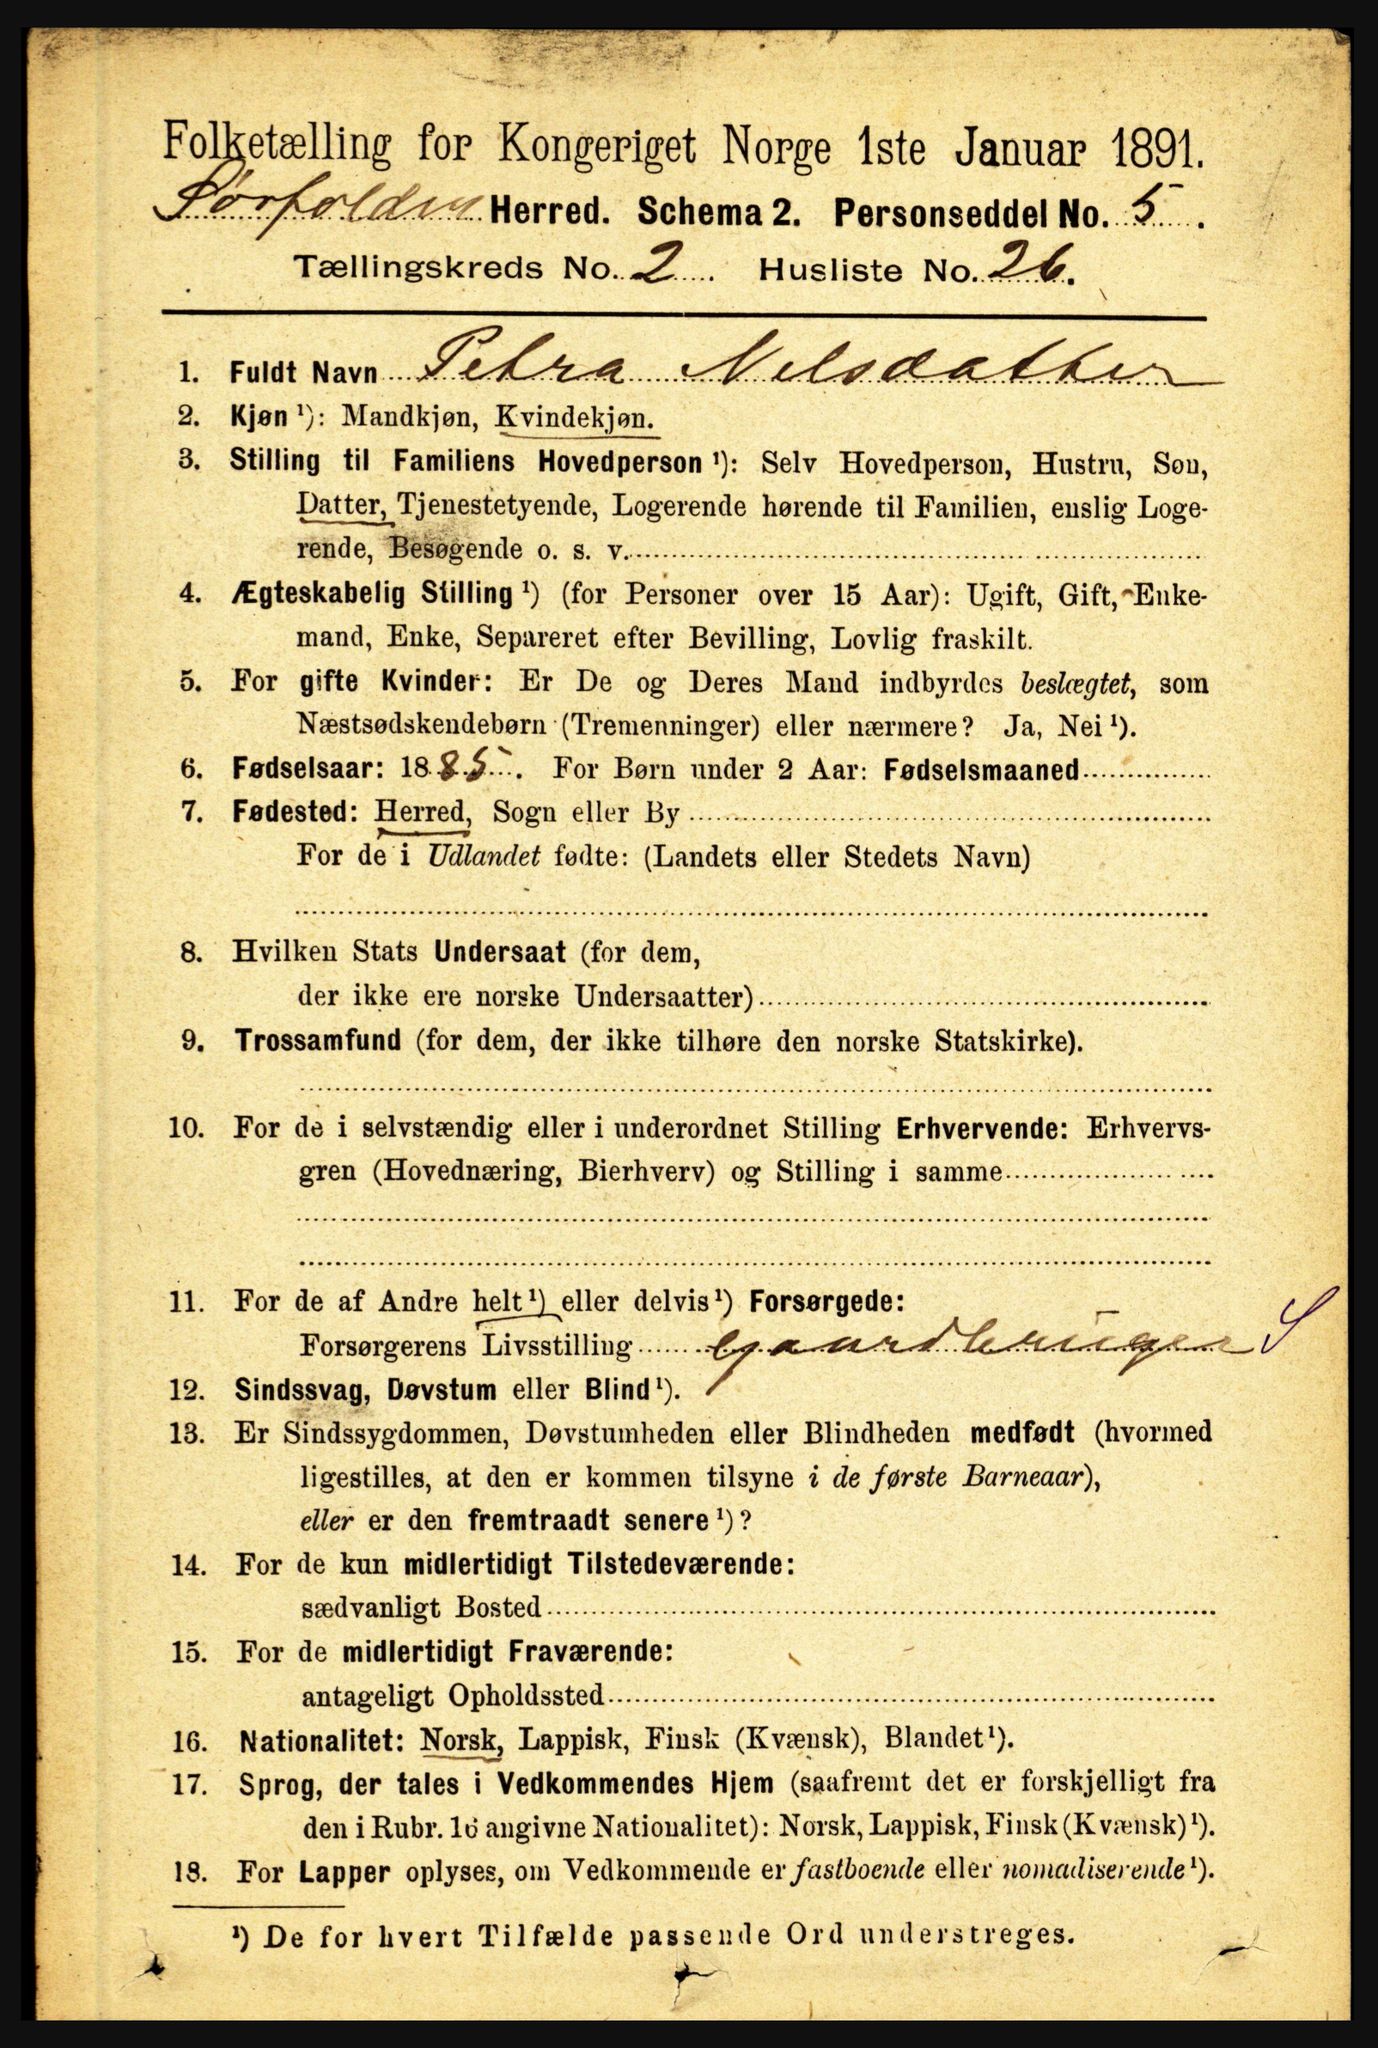 Folketælling for Kongeriget Norge 1ste Januar 1891.
Sørfolden Herred. Schema 2. Personseddel No. 5.
Tællingskreds No. 2. Husliste No. 26.
1. Fuldt Navn Petra Nelsdatter
2. Kjøn ¹): Mandkjøn, Kvindekjøn.
3. Stilling til Familiens Hovedperson ¹): Selv Hovedperson, Hustru, Søn,
Datter, Tjenestetyende, Logerende hørende til Familien, enslig Loge-
rende, Besøgende o. s. v.
4. Ægteskabelig Stilling ¹) (for Personer over 15 Aar): Ugift, Gift, Enke-
mand, Enke, Separeret efter Bevilling, Lovlig fraskilt.
5. For gifte Kvinder: Er De og Deres Mand indbyrdes beslægtet, som
Næstsødskendebørn (Tremenninger) eller nærmere? Ja, Nei ¹).
6. Fødselsaar: 1885. For Børn under 2 Aar: Fødselsmaaned
7. Fødested: Herred, Sogn eller By
For de i Udlandet fødte: (Landets eller Stedets Navn)
8. Hvilken Stats Undersaat (for dem,
der ikke ere norske Undersaatter)
9. Trossamfund (for dem, der ikke tilhøre den norske Statskirke).
10. For de i selvstændig eller i underordnet Stilling Erhvervende: Erhvervs-
gren (Hovednæring, Bierhverv) og Stilling i samme
11. For de af Andre helt ¹) eller delvis ¹) Forsørgede:
Forsørgerens Livsstilling Gaardbruger S
12. Sindssvag, Døvstum eller Blind ¹).
13. Er Sindssygdommen, Døvstumheden eller Blindheden medfødt (hvormed
ligestilles, at den er kommen tilsyne i de første Barneaar),
eller er den fremtraadt senere ¹)?
14. For de kun midlertidigt Tilstedeværende:
sædvanligt Bosted
15. For de midlertidigt Fraværende:
antageligt Opholdssted
16. Nationalitet: Norsk, Lappisk, Finsk (Kvænsk), Blandet ¹).
17. Sprog, der tales i Vedkommendes Hjem (saafremt det er forskjelligt fra
den i Rubr. 16 angivne Nationalitet): Norsk, Lappisk, Finsk (Kvænsk) ¹).
18. For Lapper oplyses, om Vedkommende er fastboende eller nomadiserende ¹).
¹) De for hvert Tilfælde passende Ord understreges.